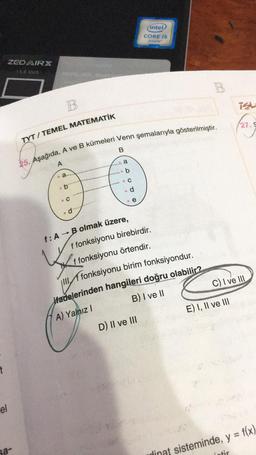 intel
CORE i5
ZED AIR X
15,6 inch
B
B
TYT / TEMEL MATEMATİK
25. Aşağıda, A ve B kümeleri Venn şemalarıyla gösterilmiştir.
27.
A
B
a
b
c
d
a
b
c
d
e
f : A → B olmak üzere,
I f fonksiyonu birebirdir.
II f fonksiyonu örtendir.
III f fonksiyonu birim fonksiyondur.
ifadelerinden hangileri doğru olabilir?
A) Yalnız I
B) I ve II
C) I ve III
D) II ve III
E) I, II ve III
sisteminde, y = f(x)